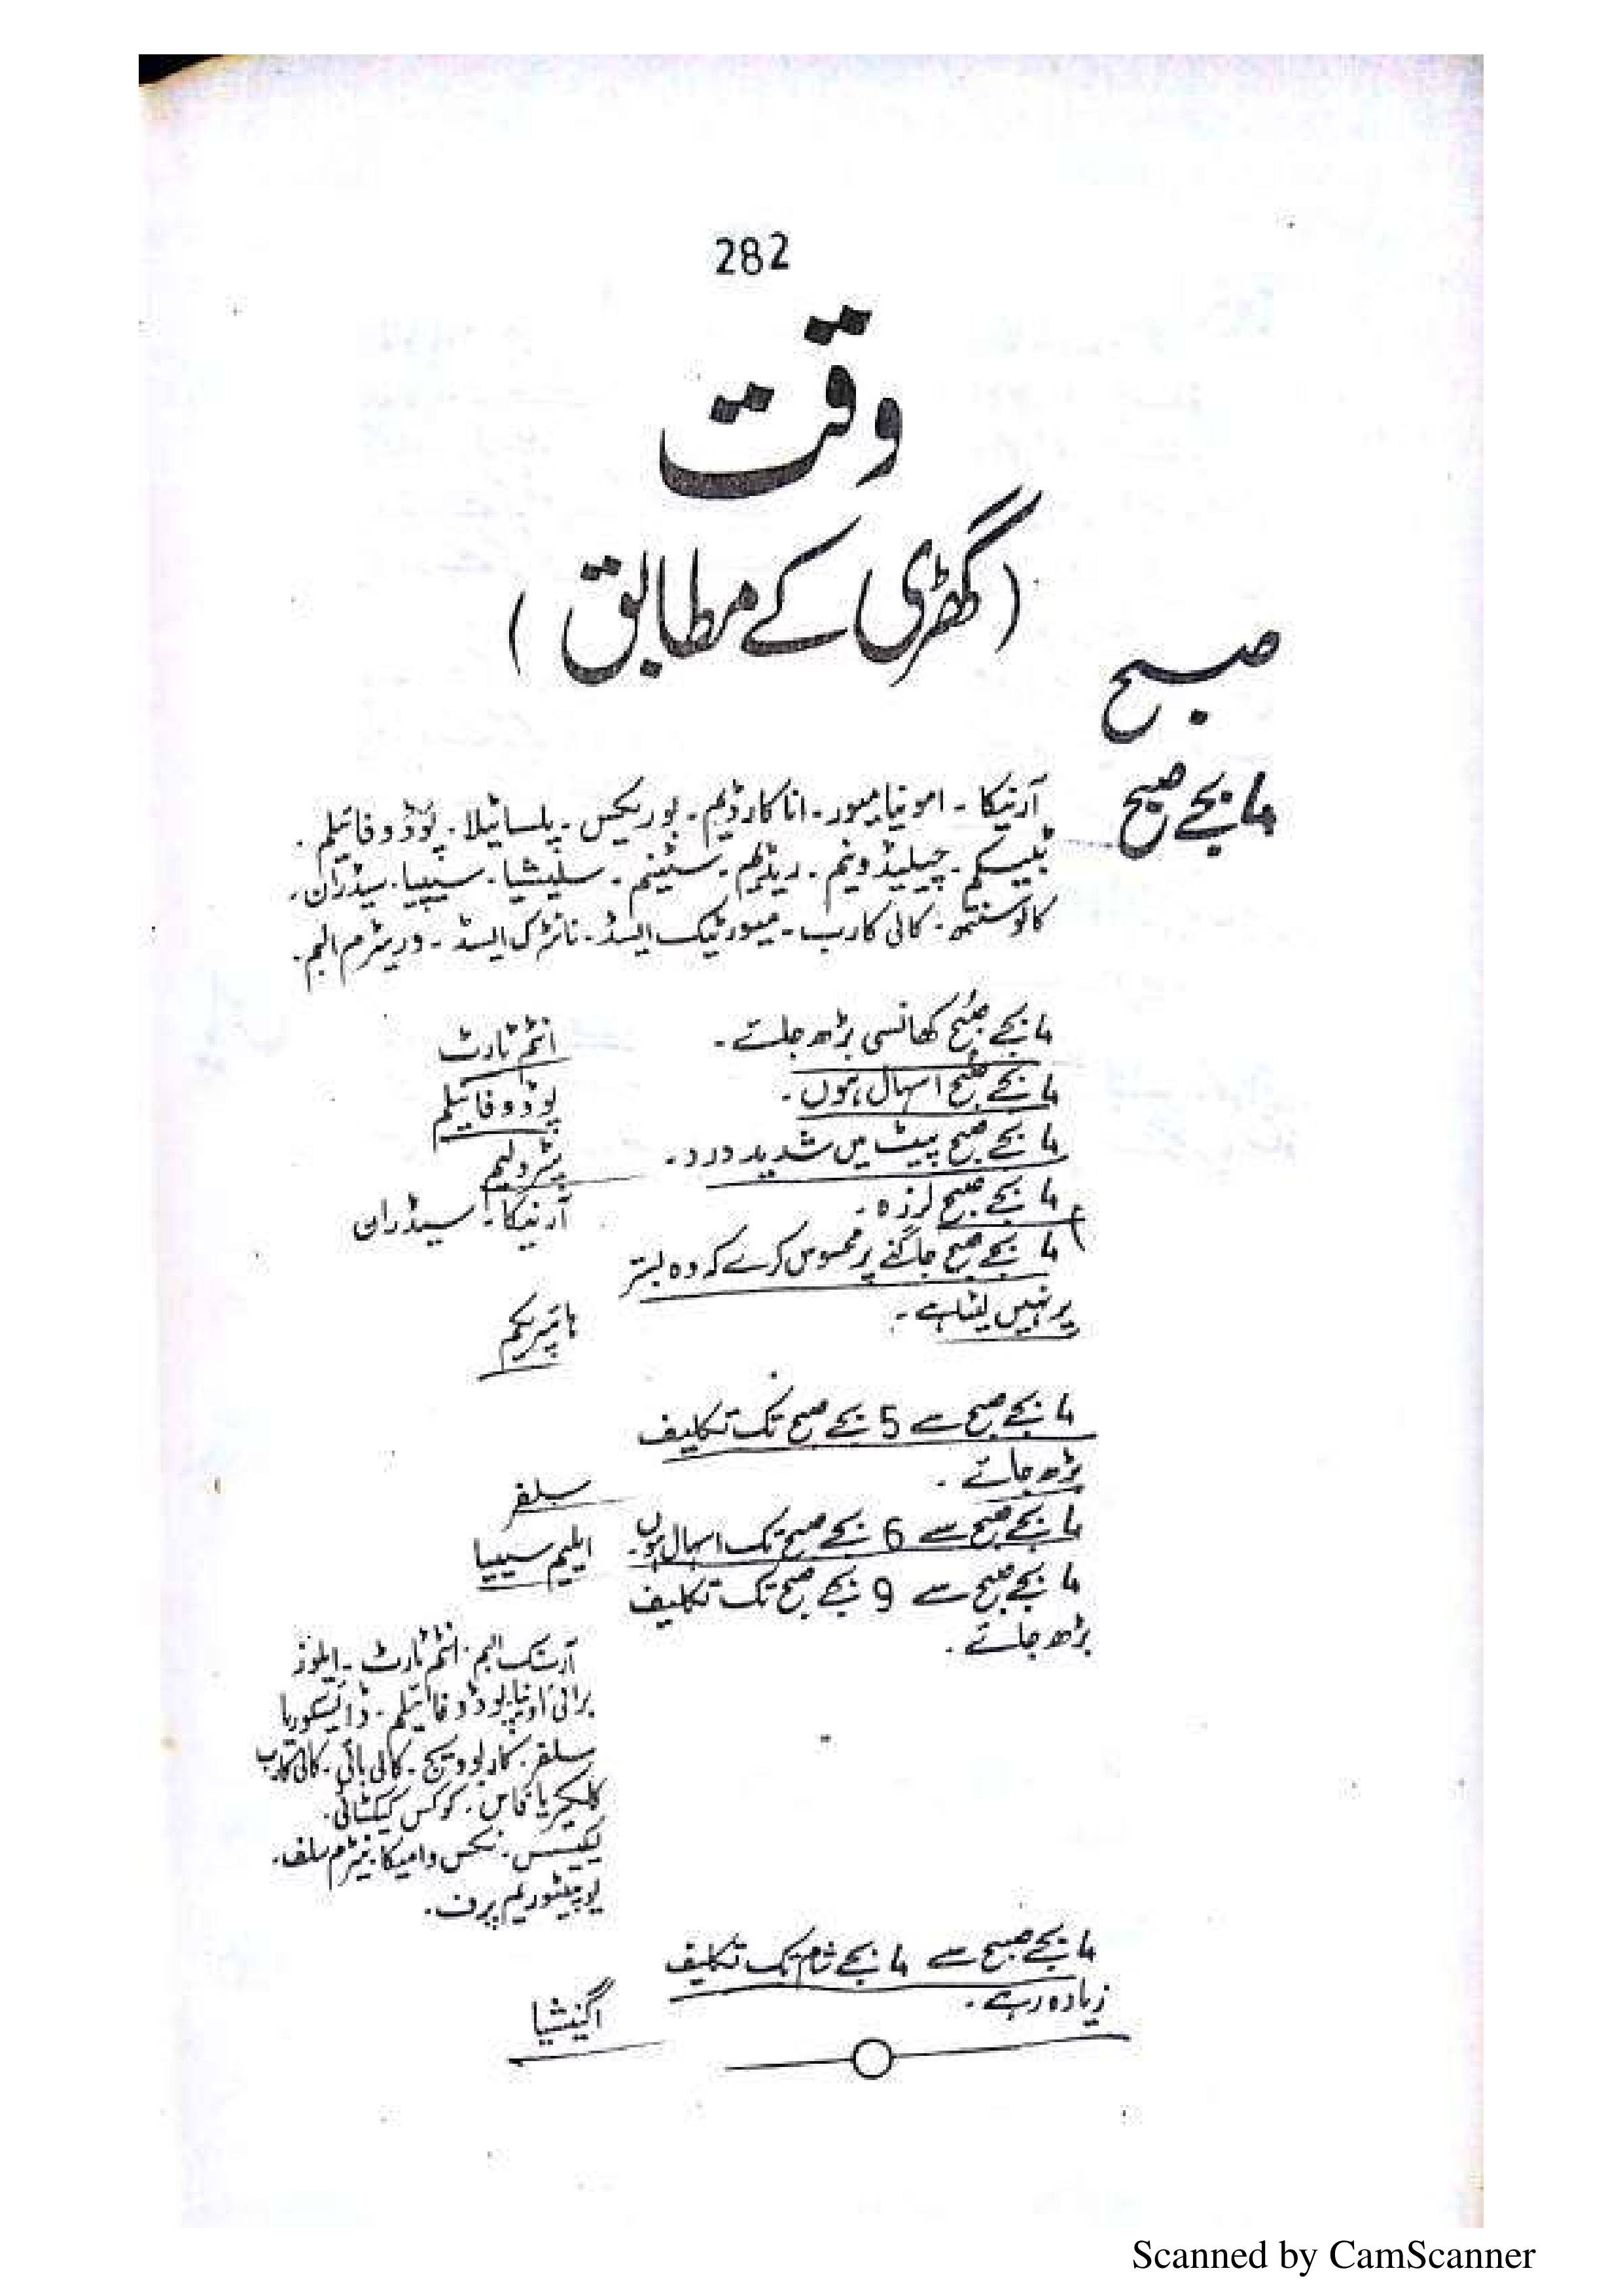 282
وقت
(گھڑی کے مطابق)
صبح
4 بجے صبح
آرنیکا - امونیا میور - اناکارڈیم - بوریکس - پلساٹیلا - پوڈوفائیلم -
ٹبیکم - چیلیڈونیم - ریڈیم - سٹینم - سلیشیا - سیپیا - سیڈران -
کالوسنتھ - کالی کارب - میورٹیک ایسڈ - نائٹرک ایسڈ - وریٹرم البم -
4 بجے صبح کھانسی بڑھ جائے - انٹم ٹارٹ
4 بجے صبح اسہال ہوں - پوڈوفائیلم
4 بجے صبح پیٹ میں شدید درد - پٹرولیم
4 بجے صبح لرزہ - آرنیکا - سیڈران
4 بجے صبح جاگنے پر محسوس کرے کہ وہ بستر
پر نہیں لیٹا ہے - ہائپریکم
4 بجے صبح سے 5 بجے صبح تک تکلیف
بڑھ جائے - سلفر
4 بجے صبح سے 6 بجے صبح تک اسہال ہوں - ایلیم سیپیا
4 بجے صبح سے 9 بجے صبح تک تکلیف
بڑھ جائے -
آرسنک البم - انٹم ٹارٹ - ایلوز
برائی اونیا پوڈوفائیلم - ڈائیسکوریا
سلفر - کاربوویج - کالی بائی - کالی کارب
کلکیریا فاس - کوکس کیکٹائی -
لیکیسس - نکس وامیکا - نیٹرم سلف -
یوپیٹوریم پرف -
4 بجے صبح سے 4 بجے شام تک تکلیف
زیادہ رہے - اگنیشیا
Scanned by CamScanner